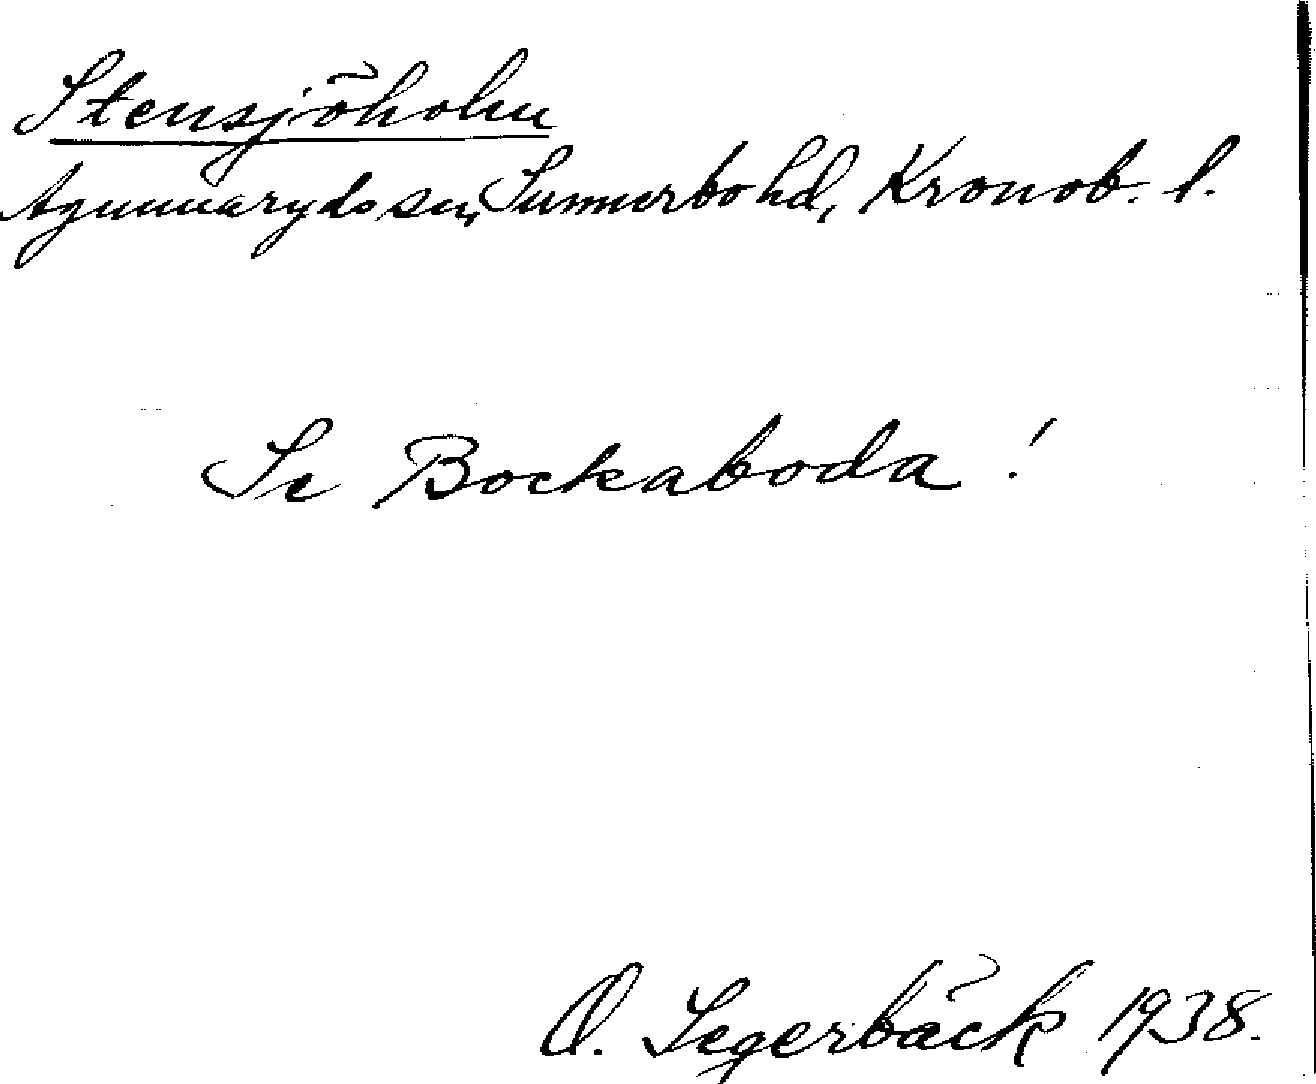 Stensjöholm
Agunnaryds sn, Sunnerbo hd, Kronob. l.
Se Bockaboda!
O. Segerbäck 1938.